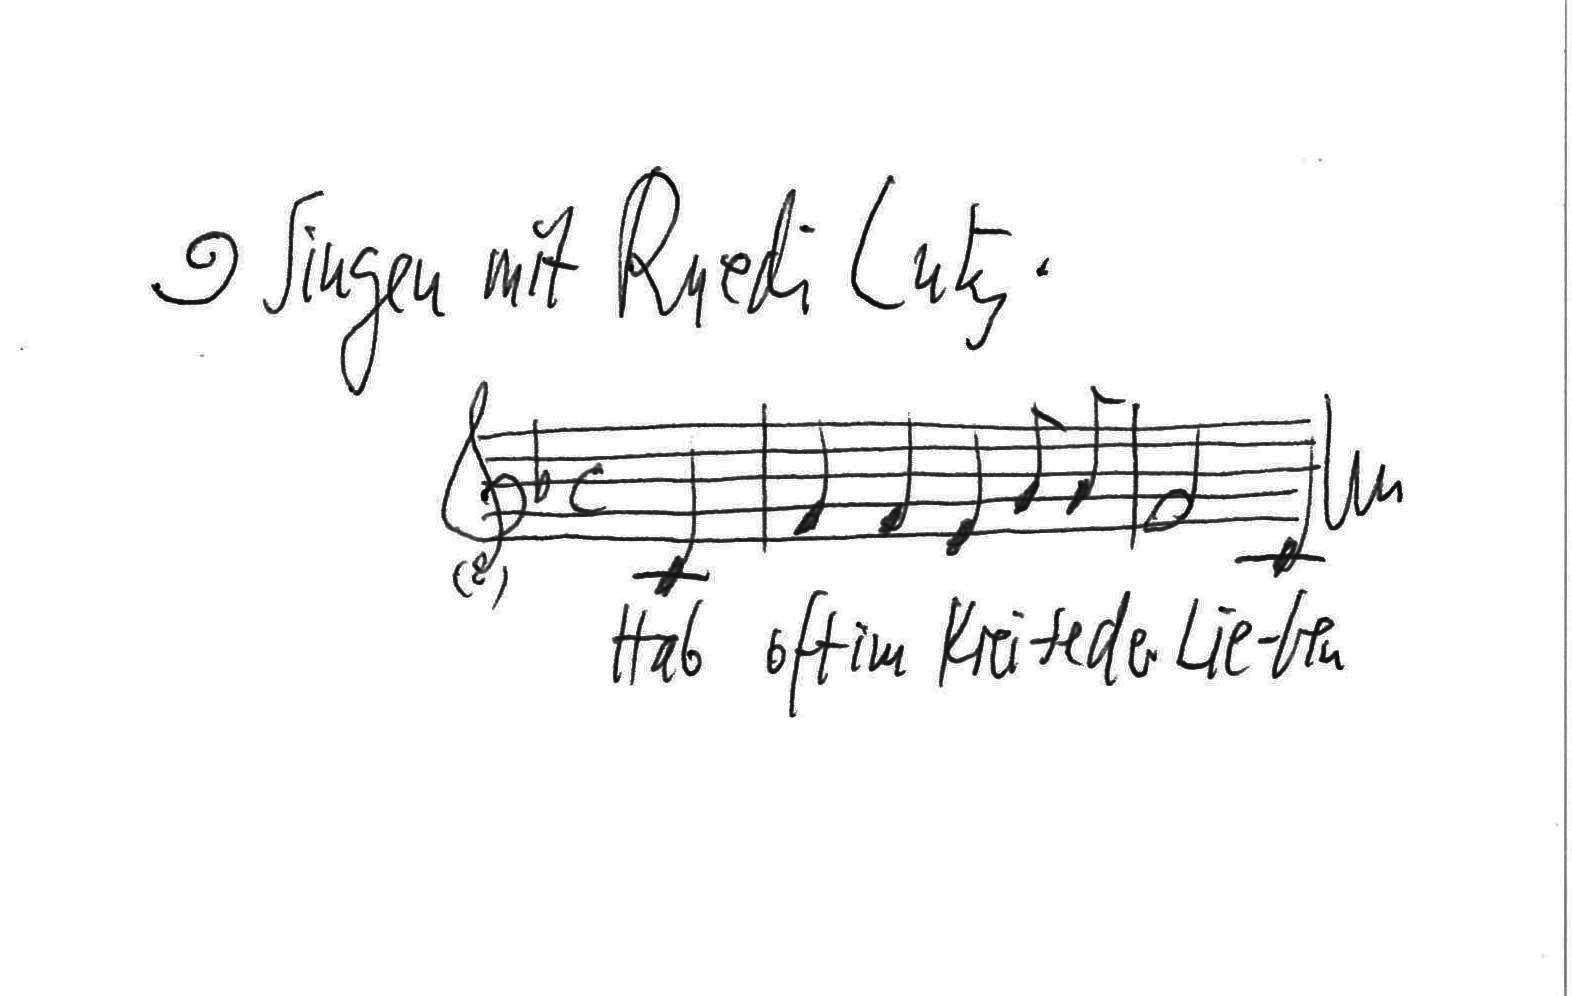 Singen mit Ruedi Lutz.
(8)
Hab oft im Krei-se der Lie-ben